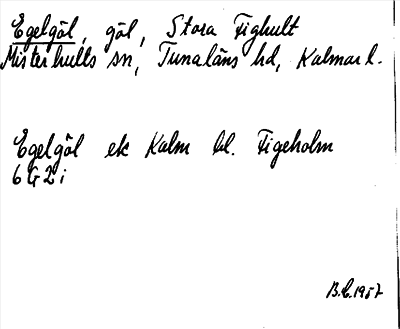 Egelgöl, göl, Stora Fighult
Misterhults sn, Tunaläns hd, Kalmar l.
Egelgöl ek Kalm bl. Figeholm
6 G 2 i